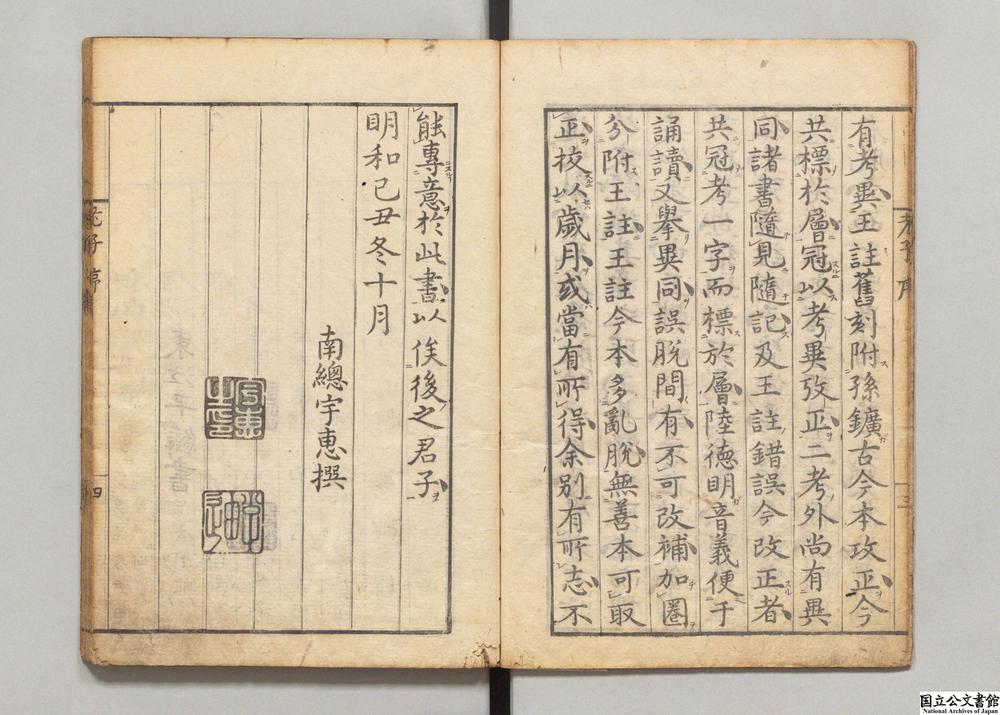 有考異王註舊刻附孫鑛古今本攷正今
共標於層冠以考異攷正二考外尚有異
同諸書隨見隨記及王註錯誤今改正者
共冠考一字而標於層陸德明音義便于
誦讀又舉異同誤脫間有不可改補加圈
分附王註王註今本多亂脫無善本可取
正挍以歲月或當有所得余別有所志不
能專意於此書以俟後之君子
明和己丑冬十月
南總宇惠撰
老子序
三
四
宇惠之印
国立公文書館
National Archives of Japan